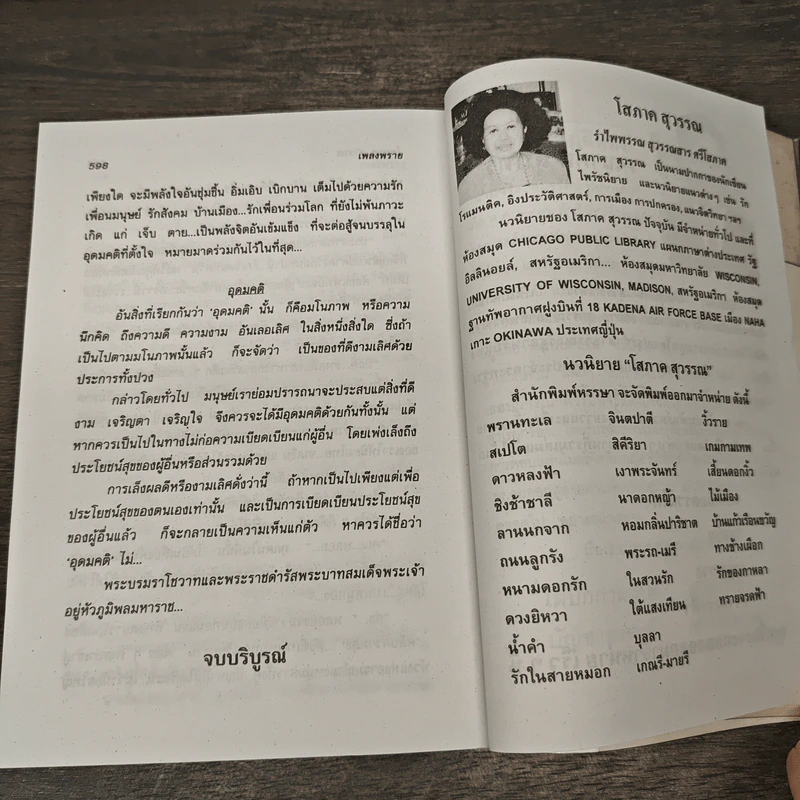 598
เพลงพราย
เพียงใด จะมีพลังใจอันชุ่มชื่น อิ่มเอิบ เบิกบาน เต็มไปด้วยความรัก
เพื่อนมนุษย์ รักสังคม บ้านเมือง...รักเพื่อนร่วมโลก ที่ยังไม่พ้นภาวะ
เกิด แก่ เจ็บ ตาย...เป็นพลังจิตอันเข้มแข็ง ที่จะต่อสู้จนบรรลุใน
อุดมคติที่ตั้งใจ หมายมาดร่วมกันไว้ในที่สุด...
อุดมคติ
อันสิ่งที่เรียกกันว่า 'อุดมคติ' นั้น ก็คือมโนภาพ หรือความ
นึกคิด ถึงความดี ความงาม อันเลอเลิศ ในสิ่งหนึ่งสิ่งใด ซึ่งถ้า
เป็นไปตามมโนภาพนั้นแล้ว ก็จะจัดว่า เป็นของที่ดีงามเลิศด้วย
ประการทั้งปวง
กล่าวโดยทั่วไป มนุษย์เราย่อมปรารถนาจะประสบแต่สิ่งที่ดี
งาม เจริญตา เจริญใจ จึงควรจะได้มีอุดมคติด้วยกันทั้งนั้น แต่
หากควรเป็นไปในทางไม่ก่อความเบียดเบียนแก่ผู้อื่น โดยเพ่งเล็งถึง
ประโยชน์สุขของผู้อื่นหรือส่วนรวมด้วย
การเล็งผลดีหรืองามเลิศดั่งว่านี้ ถ้าหากเป็นไปเพียงแต่เพื่อ
ประโยชน์สุขของตนเองเท่านั้น และเป็นการเบียดเบียนประโยชน์สุข
ของผู้อื่นแล้ว ก็จะกลายเป็นความเห็นแก่ตัว หาควรได้ชื่อว่า
'อุดมคติ' ไม่...
พระบรมราโชวาทและพระราชดำรัสพระบาทสมเด็จพระเจ้า
อยู่หัวภูมิพลมหาราช...
จบบริบูรณ์
โสภาค สุวรรณ
รำไพพรรณ สุวรรณสาร ศรีโสภาค
โสภาค สุวรรณ เป็นนามปากกาของนักเขียน
ไพรัชนิยาย และนวนิยายแนวต่างๆ เช่น รัก
โรแมนติค, อิงประวัติศาสตร์, การเมือง การปกครอง, แนวจิตวิทยา ฯลฯ
นวนิยายของ โสภาค สุวรรณ ปัจจุบัน มีจำหน่ายทั่วไป และที่
ห้องสมุด CHICAGO PUBLIC LIBRARY แผนกภาษาต่างประเทศ รัฐ
อิลลินอยส์, สหรัฐอเมริกา... ห้องสมุดมหาวิทยาลัย WISCONSIN,
UNIVERSITY OF WISCONSIN, MADISON, สหรัฐอเมริกา ห้องสมุด
ฐานทัพอากาศฝูงบินที่ 18 KADENA AIR FORCE BASE เมือง NAHA
เกาะ OKINAWA ประเทศญี่ปุ่น
นวนิยาย "โสภาค สุวรรณ"
สำนักพิมพ์หรรษา จะจัดพิมพ์ออกมาจำหน่าย ดังนี้
พรานทะเล จินตปาตี งิ้วราย
สเปโต สิคีริยา เกมกามเทพ
ดาวหลงฟ้า เงาพระจันทร์ เสี้ยนดอกงิ้ว
ชิงช้าชาลี นาดอกหญ้า ไม้เมือง
ลานนกจาก หอมกลิ่นปาริชาต บ้านแก้วเรือนขวัญ
ถนนลูกรัง พระรถ-เมรี ทางช้างเผือก
หนามดอกรัก ในสวนรัก รักของกาหลา
ดวงยิหวา ใต้แสงเทียน ทรายจรดฟ้า
น้ำคำ บุลลา
รักในสายหมอก เกณรี-มายรี